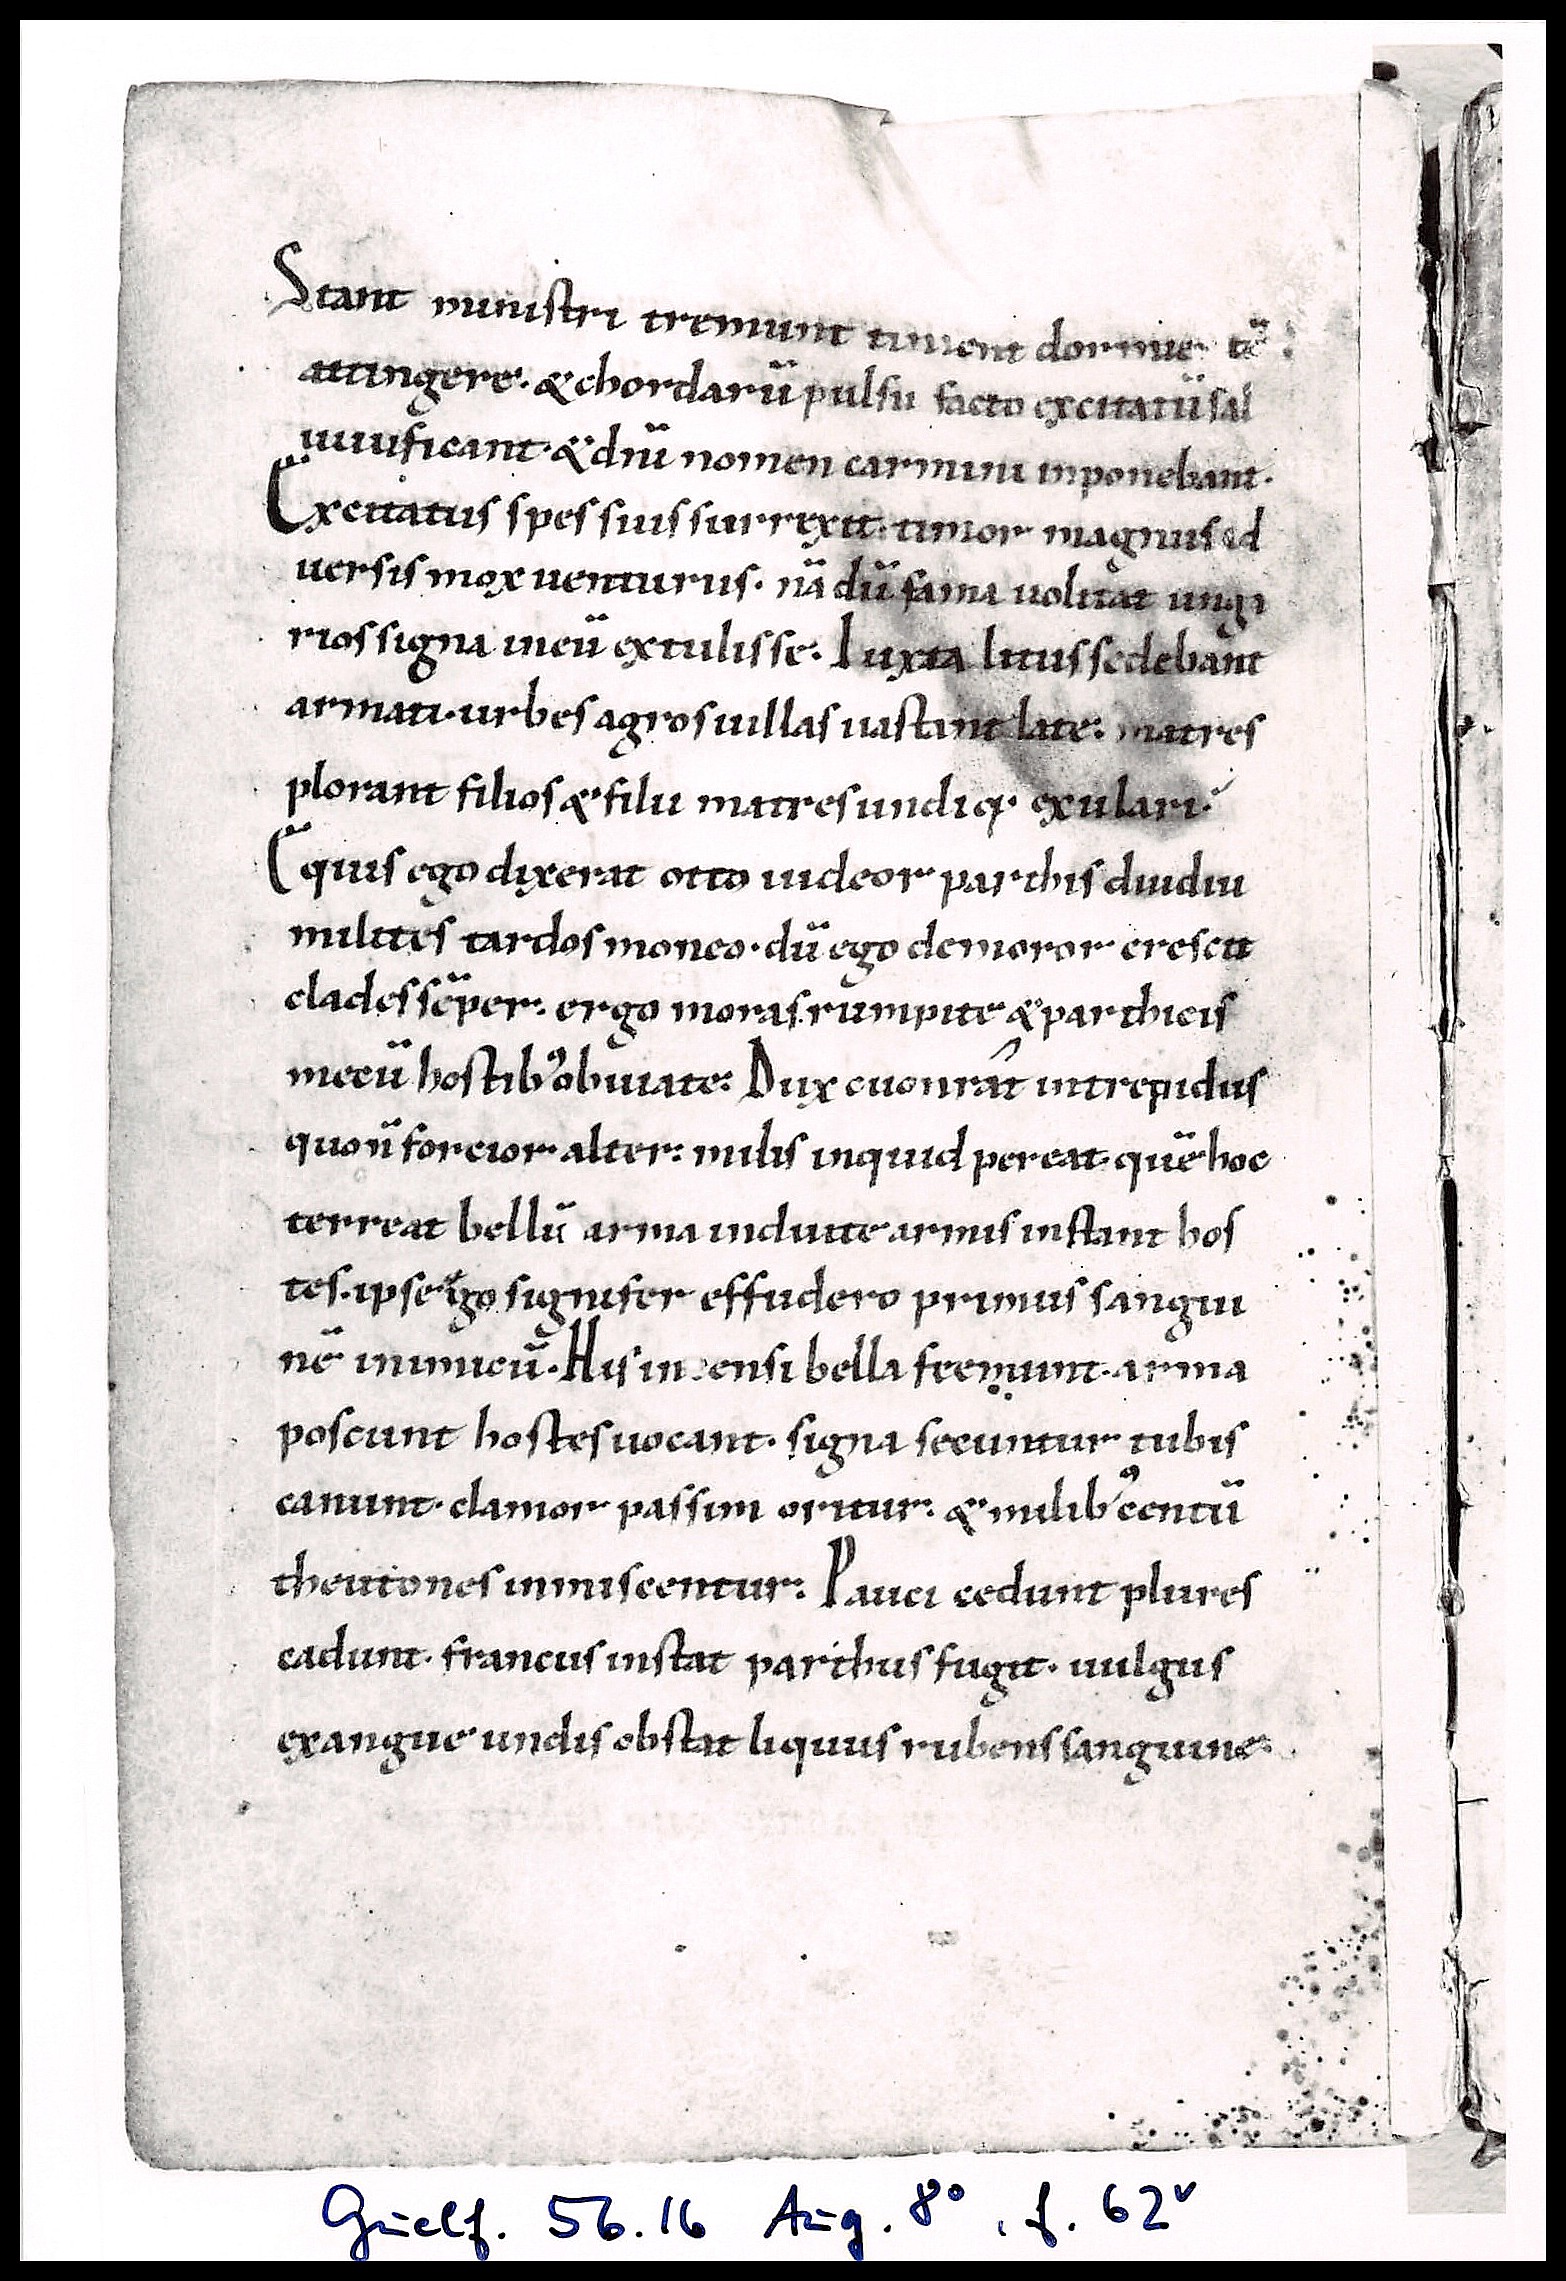 Stant ministri tremunt timent dormie tē
attingere· & chordarū pulsu facto excitatū sal
uuificant· & dnī nomen carmini inponebant·
Excitatus spes suis surrexit· timor magnus ad
uersis mox uenturus· nā dū fama uolitat unga
rios signa in eū extulisse· Iuxta litus sedebant
armati· urbes agros uillas uastant late· matres
plorant filios & filii matres undiq· exulari·
Equis ego dixerat otto uideor parthis diu diu
milites tardos moneo· dū ego demoror crescit
clades sēper· ergo moras rumpite & parthicis
mecū hostib᾽ obuiate· Dux cuonrât intrepidus
quo n̄ forcior alter· milis inquid pereat· quē hoc
terreat bellū arma induite armis instant hos
tes· ipse ego signifer effudero primus sangui
nē inimicū· His incensi bella fremunt· arma
poscunt hostes uocant· signa secuntur tubis
canunt· clamor passim oritur· & milib᾽ centū
theutones inmiscentur· Pauci cedunt plures
cadunt· francus instat parthus fugit· uulgus
exangue undis obstat liquus rubens sanguine·
Guelf. 56.16 Aug. 8°, f. 62v